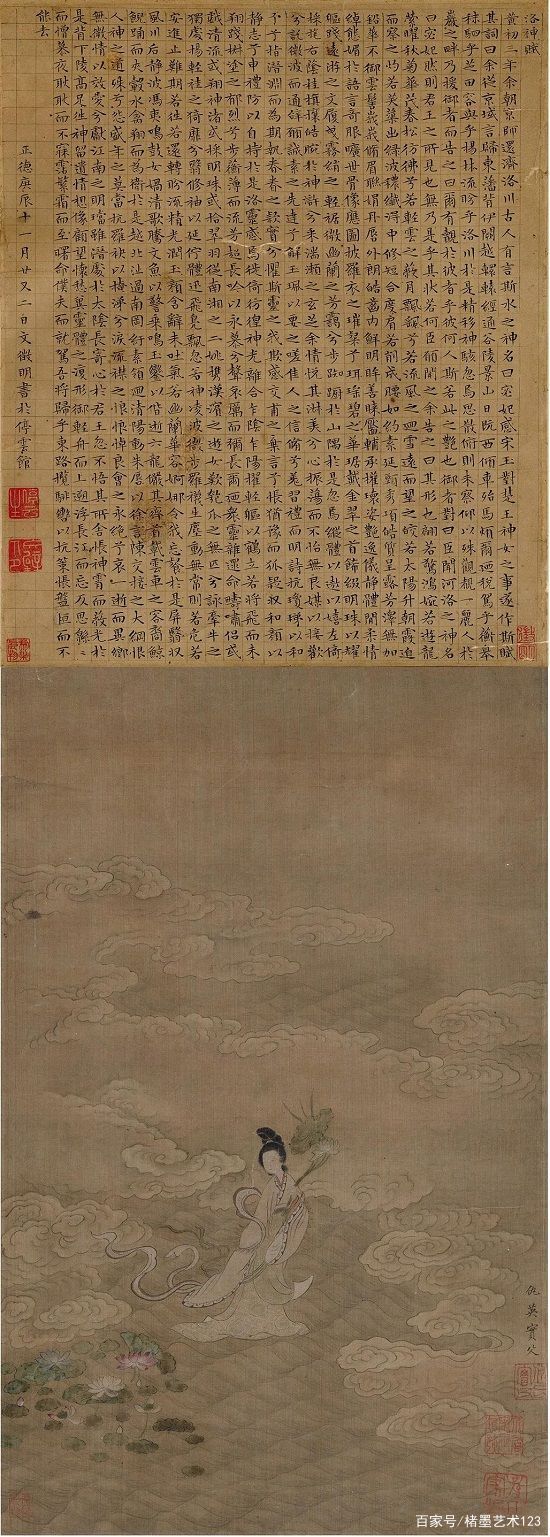 洛神賦
黃初三年余朝京師還濟洛川古人有言斯水之神名曰宓妃感宋玉對楚王神女之事遂作斯賦
其詞曰余從京域言歸東藩背伊闕越轘轅經通谷陵景山日既西傾車殆馬煩爾迺稅駕乎蘅皋
秣駟乎芝田容與乎楊林流眄乎洛川於是精移神駭忽焉思散俯則未察仰以殊觀覩一麗人於
巖之畔乃援御者而告之曰爾有覿於彼者乎彼何人斯若此之艷也御者對曰臣聞河洛之神名
曰宓妃然則君王之所見也無乃是乎其狀若何臣願聞之余告之曰其形也翩若驚鴻婉若遊龍
榮曜秋菊華茂春松彷彿兮若輕雲之蔽月飄颻兮若流風之迴雪遠而望之皎若太陽升朝霞迫
而察之灼若芙蕖出綠波穠纖得中修短合度肩若削成腰如約素延頸秀項皓質呈露芳澤無加
鉛華不御雲髻峩峩脩眉聯娟丹唇外朗皓齒內鮮明眸善睞靨輔承權瓌姿艷逸儀靜體閒柔情
綽態媚於語言奇服曠世骨像應圖披羅衣之璀粲兮珥瑤碧之華琚戴金翠之首飾綴明珠以耀
軀踐遠遊之文履曳霧綃之輕裾微幽蘭之芳藹兮步踟躕於山隅於是忽焉縱體以遨以嬉左倚
采旄右蔭桂旗攘皓腕於神滸兮采湍瀨之玄芝余情悅其淑美兮心振蕩而不怡無良媒以接歡
兮託微波而通辭願誠素之先達兮解玉珮以要之嗟佳人之信脩兮羌習禮而明詩抗瓊珶以和
予兮指潛淵而為期執眷眷之款實兮懼斯靈之我欺感交甫之棄言兮悵猶豫而狐疑收和顏以
靜志兮申禮防以自持於是洛靈感焉徙倚彷徨神光離合乍陰乍陽擢輕軀以鶴立若將飛而未
翔踐椒塗之郁烈兮步蘅薄而流芳超長吟以永慕兮聲哀厲而彌長爾迺衆靈雜遝命疇嘯侶或
戲清流或翔神渚或采明珠或拾翠羽從南湘之二妃攜漢濱之游女歎匏瓜之無匹兮詠牽牛之
獨處揚輕袿之猗靡兮翳修袖以延佇體迅飛鳧飄忽若神凌波微步羅襪生塵動無常則若危若
安進止難期若往若還轉眄流精光潤玉顏含辭未吐氣若幽蘭華容婀娜令我忘餐於是屏翳收
風川后靜波馮夷鳴鼓女媧清歌騰文魚以警乘鳴玉鑾以偕逝六龍儼其齊首載雲車之容裔鯨
鯢踊而夾轂水禽翔而為衛於是越北沚過南岡紆素領迴清陽動朱唇以徐言陳交接之大綱恨
人神之道殊兮怨盛年之莫當抗羅袂以掩涕兮淚流襟之浪浪悼良會之永絕兮哀一逝而異鄉
無微情以效愛兮獻江南之明璫雖潛處於太陰長寄心於君王忽不悟其所舍悵神霄而蔽光於
是背下陵高足往神留遺情想像顧望懷愁冀靈體之復形御輕舟而上遡浮長江而忘反思綿綿
而增慕夜耿耿而不寐霑繁霜而至曙命僕夫而就駕吾將歸乎東路攬騑轡以抗策悵盤桓而不
能去
正德庚辰十一月廿又二日文徵明書於停雲館
仇英實父
百家号/楮墨艺术123